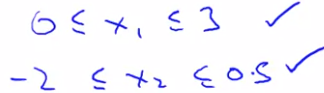 0 ≤ x₁ ≤ 3 ✓
-2 ≤ x₂ ≤ 0.5 ✓